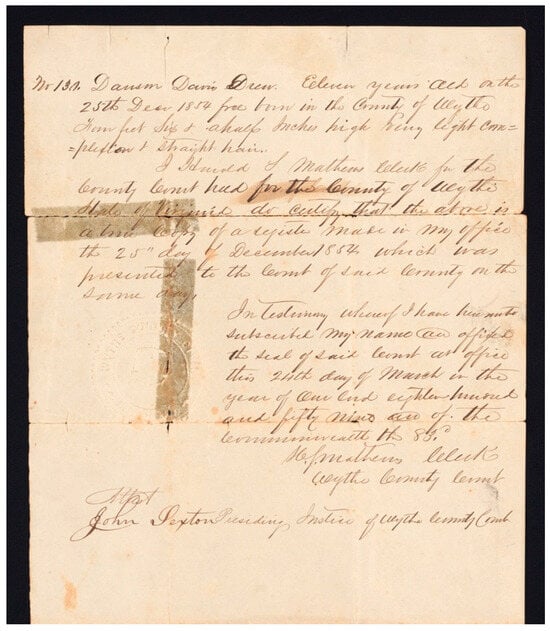 No 131. Dawson Davis Drew. Eleven years old on the
25th Decr 1854 free born in the County of Wythe
Four feet Six & a half Inches high being light com=
=plexion & straight hair.
I Harold S Mathews Clerk for the
County Court held for the County of Wythe
State of Virginia do certify that the above is
a true Copy of a register made in my office
the 25" day of December 1854 which was
presented to the Court of said County on the
same day.
In testimony whereof I have hereunto
subscribed my name and affixed
the seal of said Court at office
this 24th day of March in the
year of Our Lord eighteen hundred
and fifty nine and of the
Commonwealth the 83d
H S Mathews Clerk
Wythe County Court
Attest
John Sexton Presiding Justice of Wythe County Court